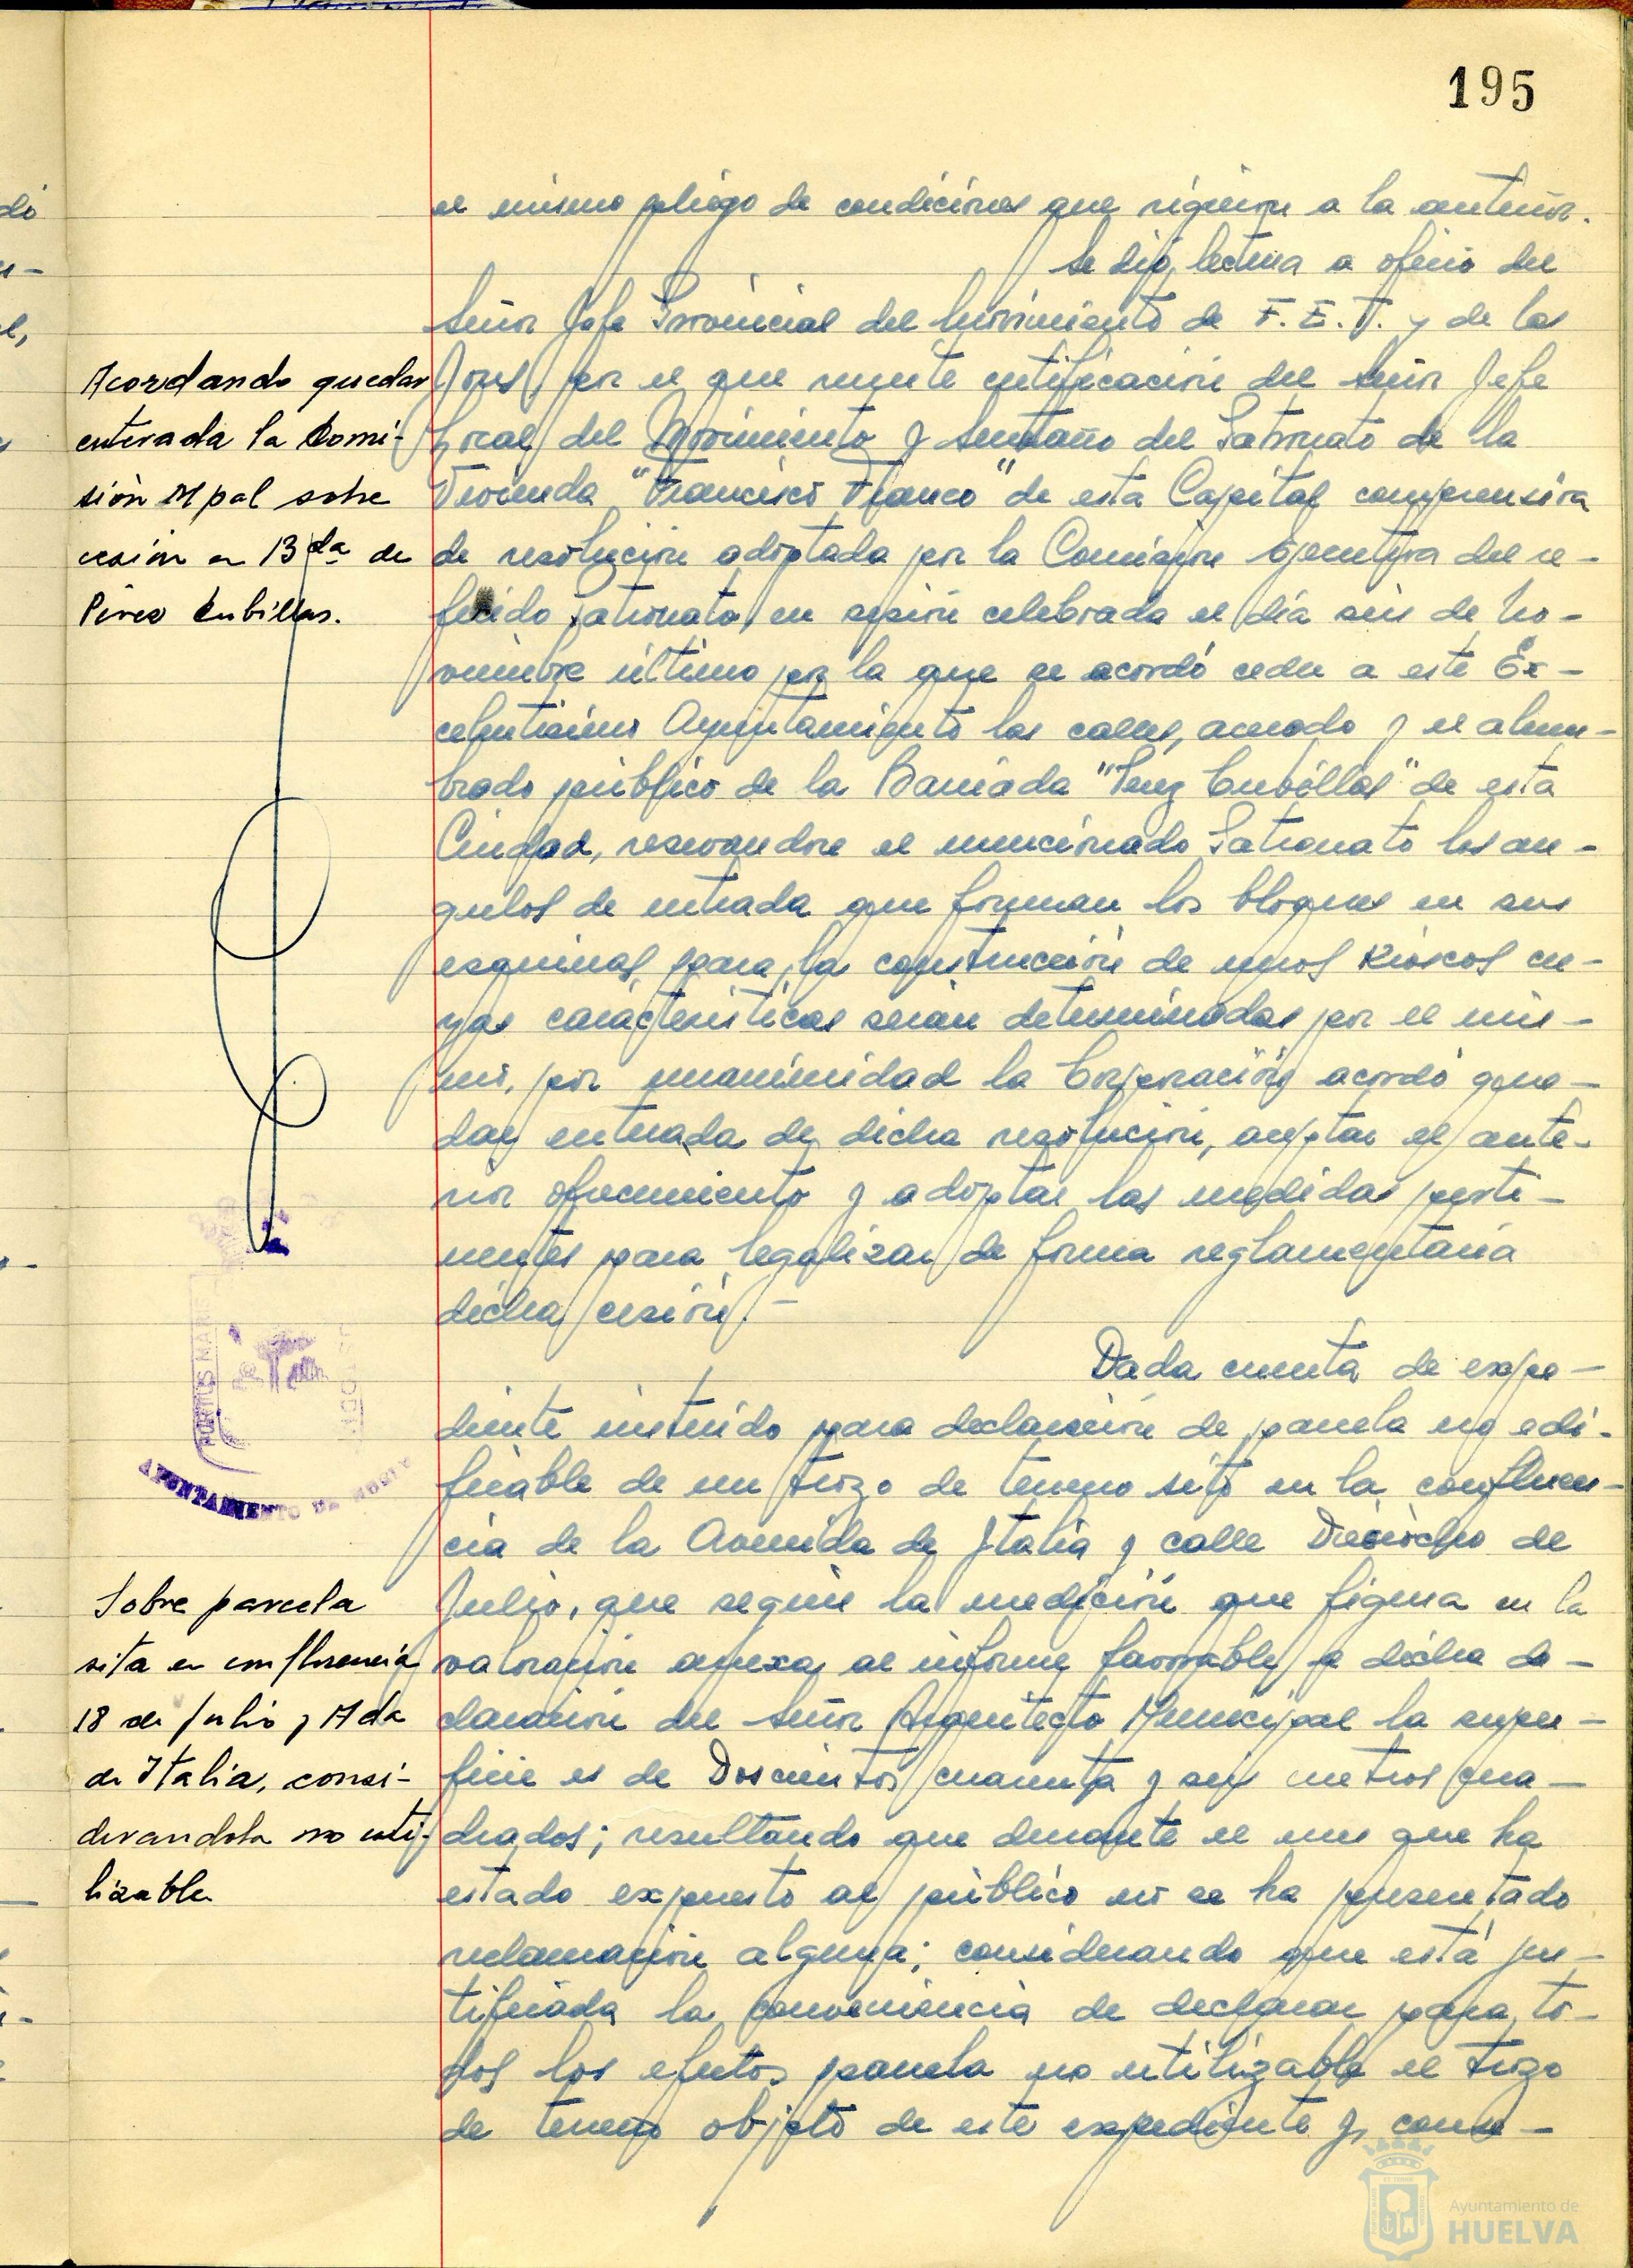 195
el mismo pliego de condiciones que rigieron a la anterior.
Se dió lectura a oficio del
Señor Jefe Provincial del Movimiento de F.E.T. y de las
Jons, por el que remite certificación del Señor Jefe
Local del Movimiento y Secretario del Patronato de la
Vivienda "Francisco Franco" de esta Capital comprensiva
de resolución adoptada por la Comisión Ejecutiva del re-
ferido patronato, en sesión celebrada el día seis de No-
viembre último por la que se acordó ceder a este Ex-
celentísimo Ayuntamiento las calles, acerado y el alum-
brado público de la Barriada "Perez Cubillas" de esta
Ciudad, reservandose el mencionado Patronato los an-
gulos de entrada que forman los bloques en sus
esquinas, para la construcción de unos Kioscos cu-
yas características serian determinadas por el mis-
mo, por unanimidad la Corporación acordó que-
dar enterada de dicha resolución, aceptar el ante-
rior ofrecimiento y adoptar las medidas perti-
nentes para legalizar de forma reglamentaria
dicha cesión.-
Dada cuenta de expe-
diente instruido para declaración de parcela no edi-
ficable de un trozo de terreno sito en la confluen-
cia de la Avenida de Italia y calle Dieciocho de
Julio, que según la medición que figura en la
valoración anexa al informe favorable a dicha de-
claración del Señor Arquitecto Municipal la super-
ficie es de Doscientos cuarenta y seis metros cua-
drados; resultando que durante el mes que ha
estado expuesto al público no se ha presentado
reclamación alguna; considerando que está jus-
tificada la conveniencia de declarar para to-
dos los efectos parcela no utilizable el trozo
de terreno objeto de este expediente y, como-
Acordando quedar
enterada la Comi-
sión Mpal sobre
cesión en B da de
Pérez Cubillas.
PORTUS MARIS
AYUNTAMIENTO DE HUELVA
Sobre parcela
sita en confluencia
18 de Julio y Avda
de Italia, consi-
derandola no uti-
lizable
Ayuntamiento de
HUELVA